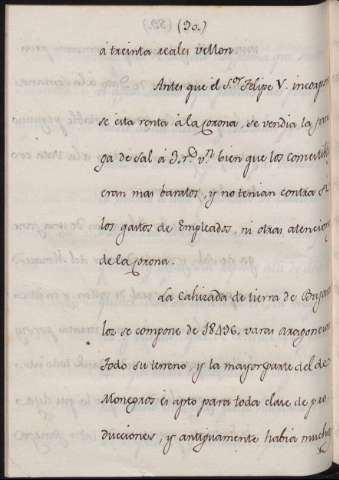 (30.)
á treinta reales vellon.
Antes que el S.or Felipe V. incorpo
se esta renta á la Corona, se vendia la fane
ga de sal á 7 r.s v.n bien que los comestibl
eran mas baratos, y no tenian contra si
los gastos de Empleados, ni otras atencion
de la Corona.
La Cahizada de tierra de Bujara
los se compone de 18496. varas aragonesas
Todo su terreno, y la mayor parte del de
Monegros es apto para toda clase de pro
ducciones, y antiguamente habia mucha